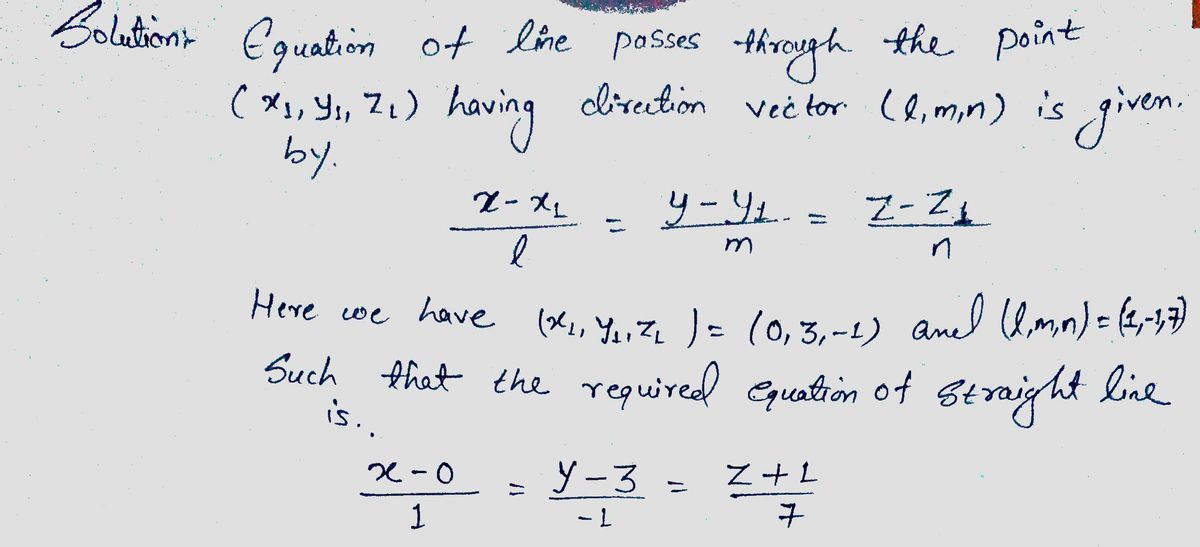 Solution:- Equation of line passes through the point
(x₁, y₁, z₁) having direction vector (l,m,n) is given.
by.
x-x₁/l = y-y₁/m = z-z₁/n
Here we have (x₁, y₁, z₁) = (0, 3, -1) and (l,m,n) = (1,-1,7)
Such that the required equation of straight line
is..
x-0/1 = y-3/-1 = z+1/7